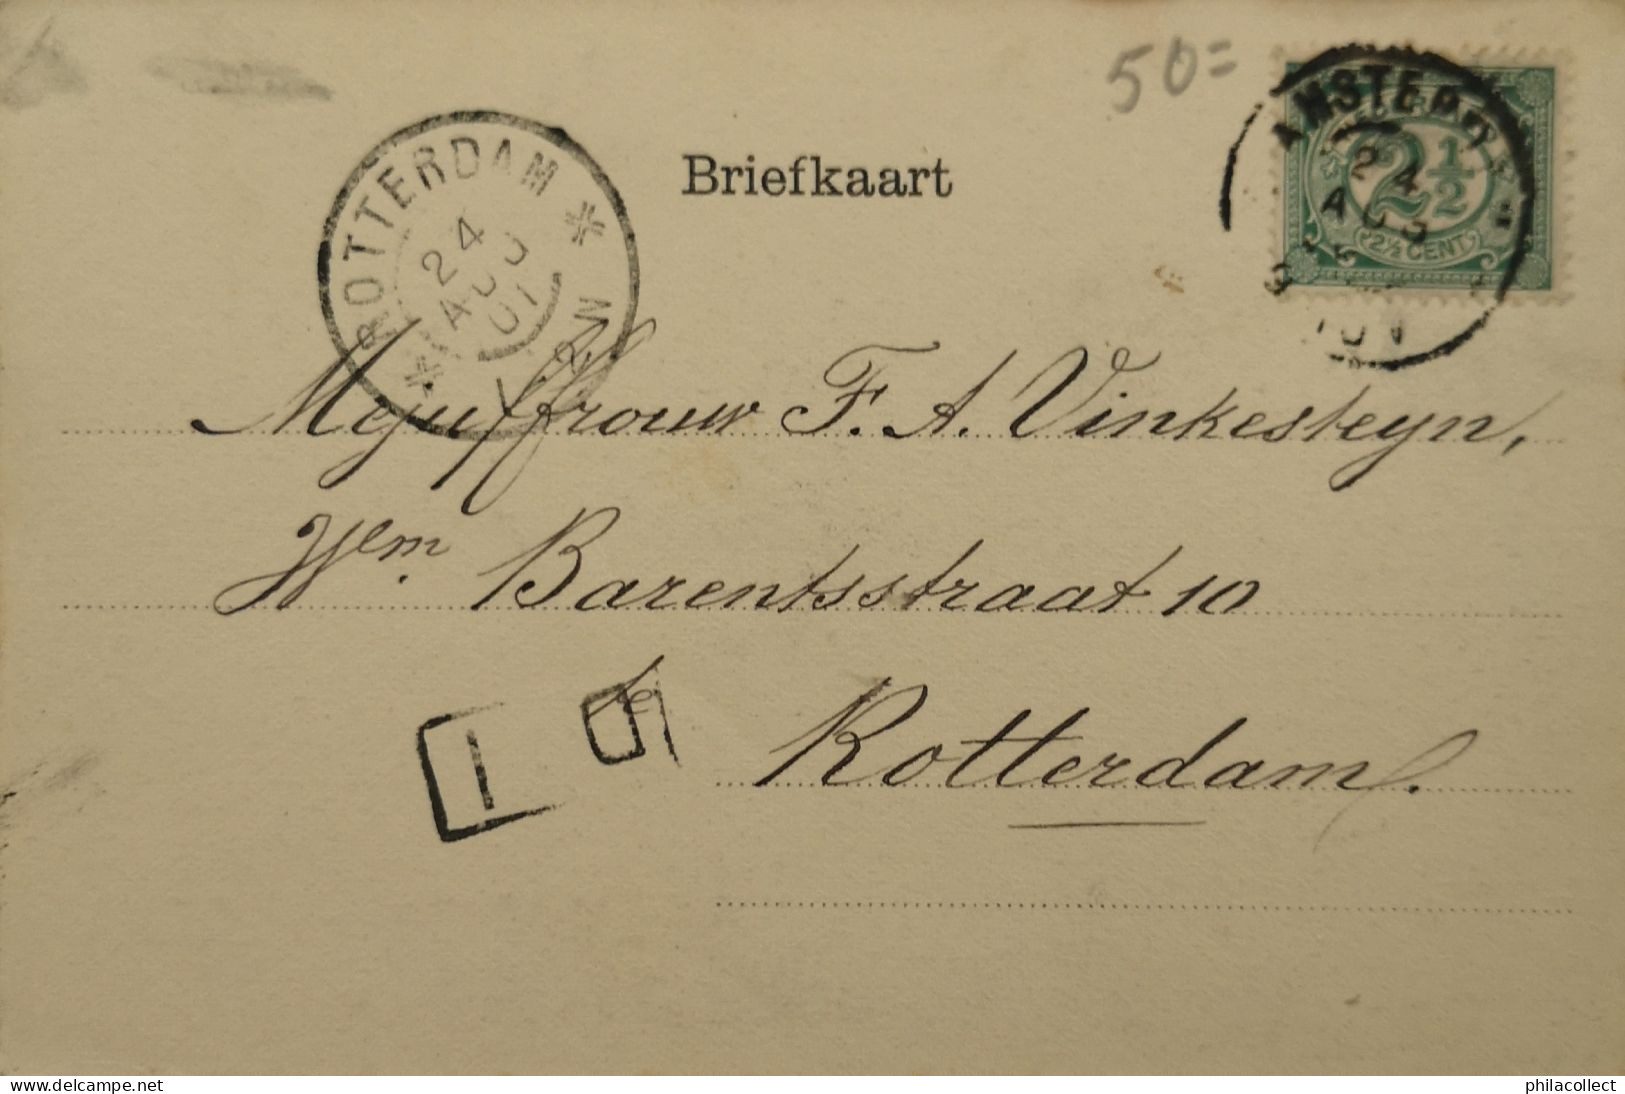 50=
Briefkaart
ROTTERDAM
24
AUG
01
AMSTERDAM
24
AUG
2½
2½ CENT
Mejuffrouw F. A. Vinkesteyn,
Wm. Barentsstraat 10
te
Rotterdam.
delcampe.net
philacollect